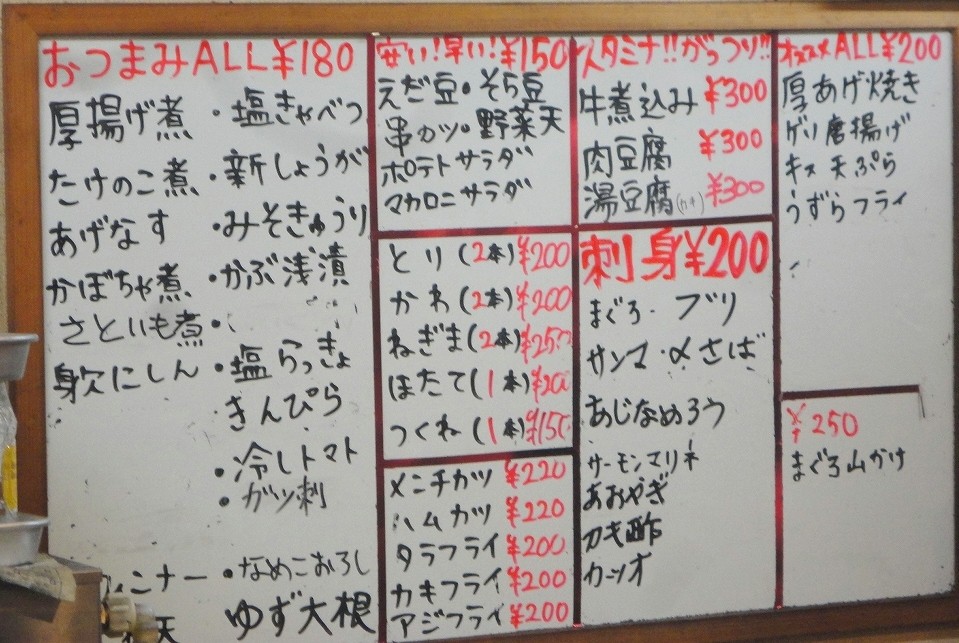 おつまみALL¥180
厚揚げ煮 ・塩きゃべつ
たけのこ煮 ・新しょうが
あげなす ・みそきゅうり
かぼちゃ煮 ・かぶ浅漬
さといも煮・
身欠にしん ・塩らっきょ
きんぴら
・冷しトマト
・ガツ刺
ィンナー ・なめこおろし
天 ゆず大根
安い!早い!¥150
えだ豆・そら豆
串カツ・野菜天
ポテトサラダ
マカロニサラダ
とり(2本)¥200
かわ(2本)¥200
ねぎま(2本)¥250
ほたて(1本)¥200
つくね(1本)¥150
メンチカツ ¥220
ハムカツ ¥220
タラフライ ¥200
カキフライ ¥200
アジフライ ¥200
スタミナ!!がっつり!!
牛煮込み ¥300
肉豆腐 ¥300
湯豆腐 ¥300
刺身¥200
まぐろ・ブリ
サンマ・〆さば
あじなめろう
サーモンマリネ
あおやぎ
カキ酢
カツオ
オススメALL¥200
厚あげ焼き
ゲソ唐揚げ
キス天ぷら
うずらフライ
¥250
まぐろ山かけ